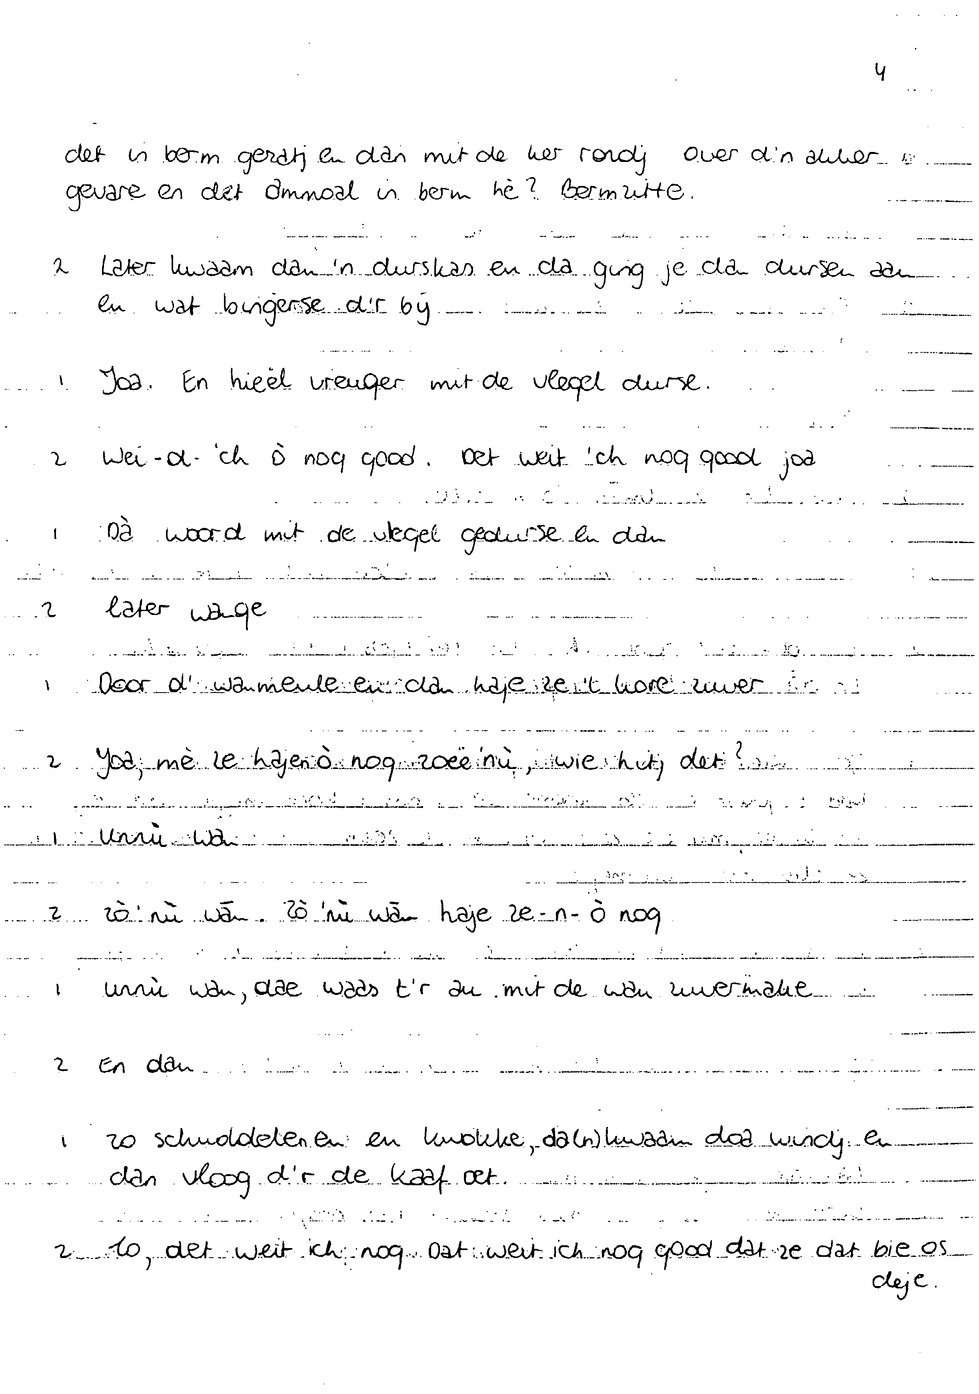 4
det in berm gezatj en dan mit de ker rondj over d'n akker
gevare en det ömmoal in berm hè? Bermzitte.
2 Later kwaam dan 'n durskas en da ging je dan dursen aan
en wat bingerse d'r bij
1 Joa. En hieël vreuger mit de vlegel durse.
2 Wei-d-'ch ò nog good. Det weit 'ch nog good joa
1 Dà woord mit de vlegel gedurse en dan
2 later wage
1 Door d' wanmeule en dan haje ze 't kore zuver
2 Joa, mè ze hajen ò nog zoëe 'nù, wie hitj det?
1 Unnù wan
2 Zò 'nù wān. Zò 'nù wān haje ze-n-ò nog
1 unnù wan, dae waas t'r au mit de wan zuvermake
2 En dan
1 zo schuddelen en en kwokke, da(n) kwaam doa windj en
dan vloog d'r de kaaf oet.
2 Zo, det weit ich nog. Dat weit ich nog good dat ze dat bie os
deje.